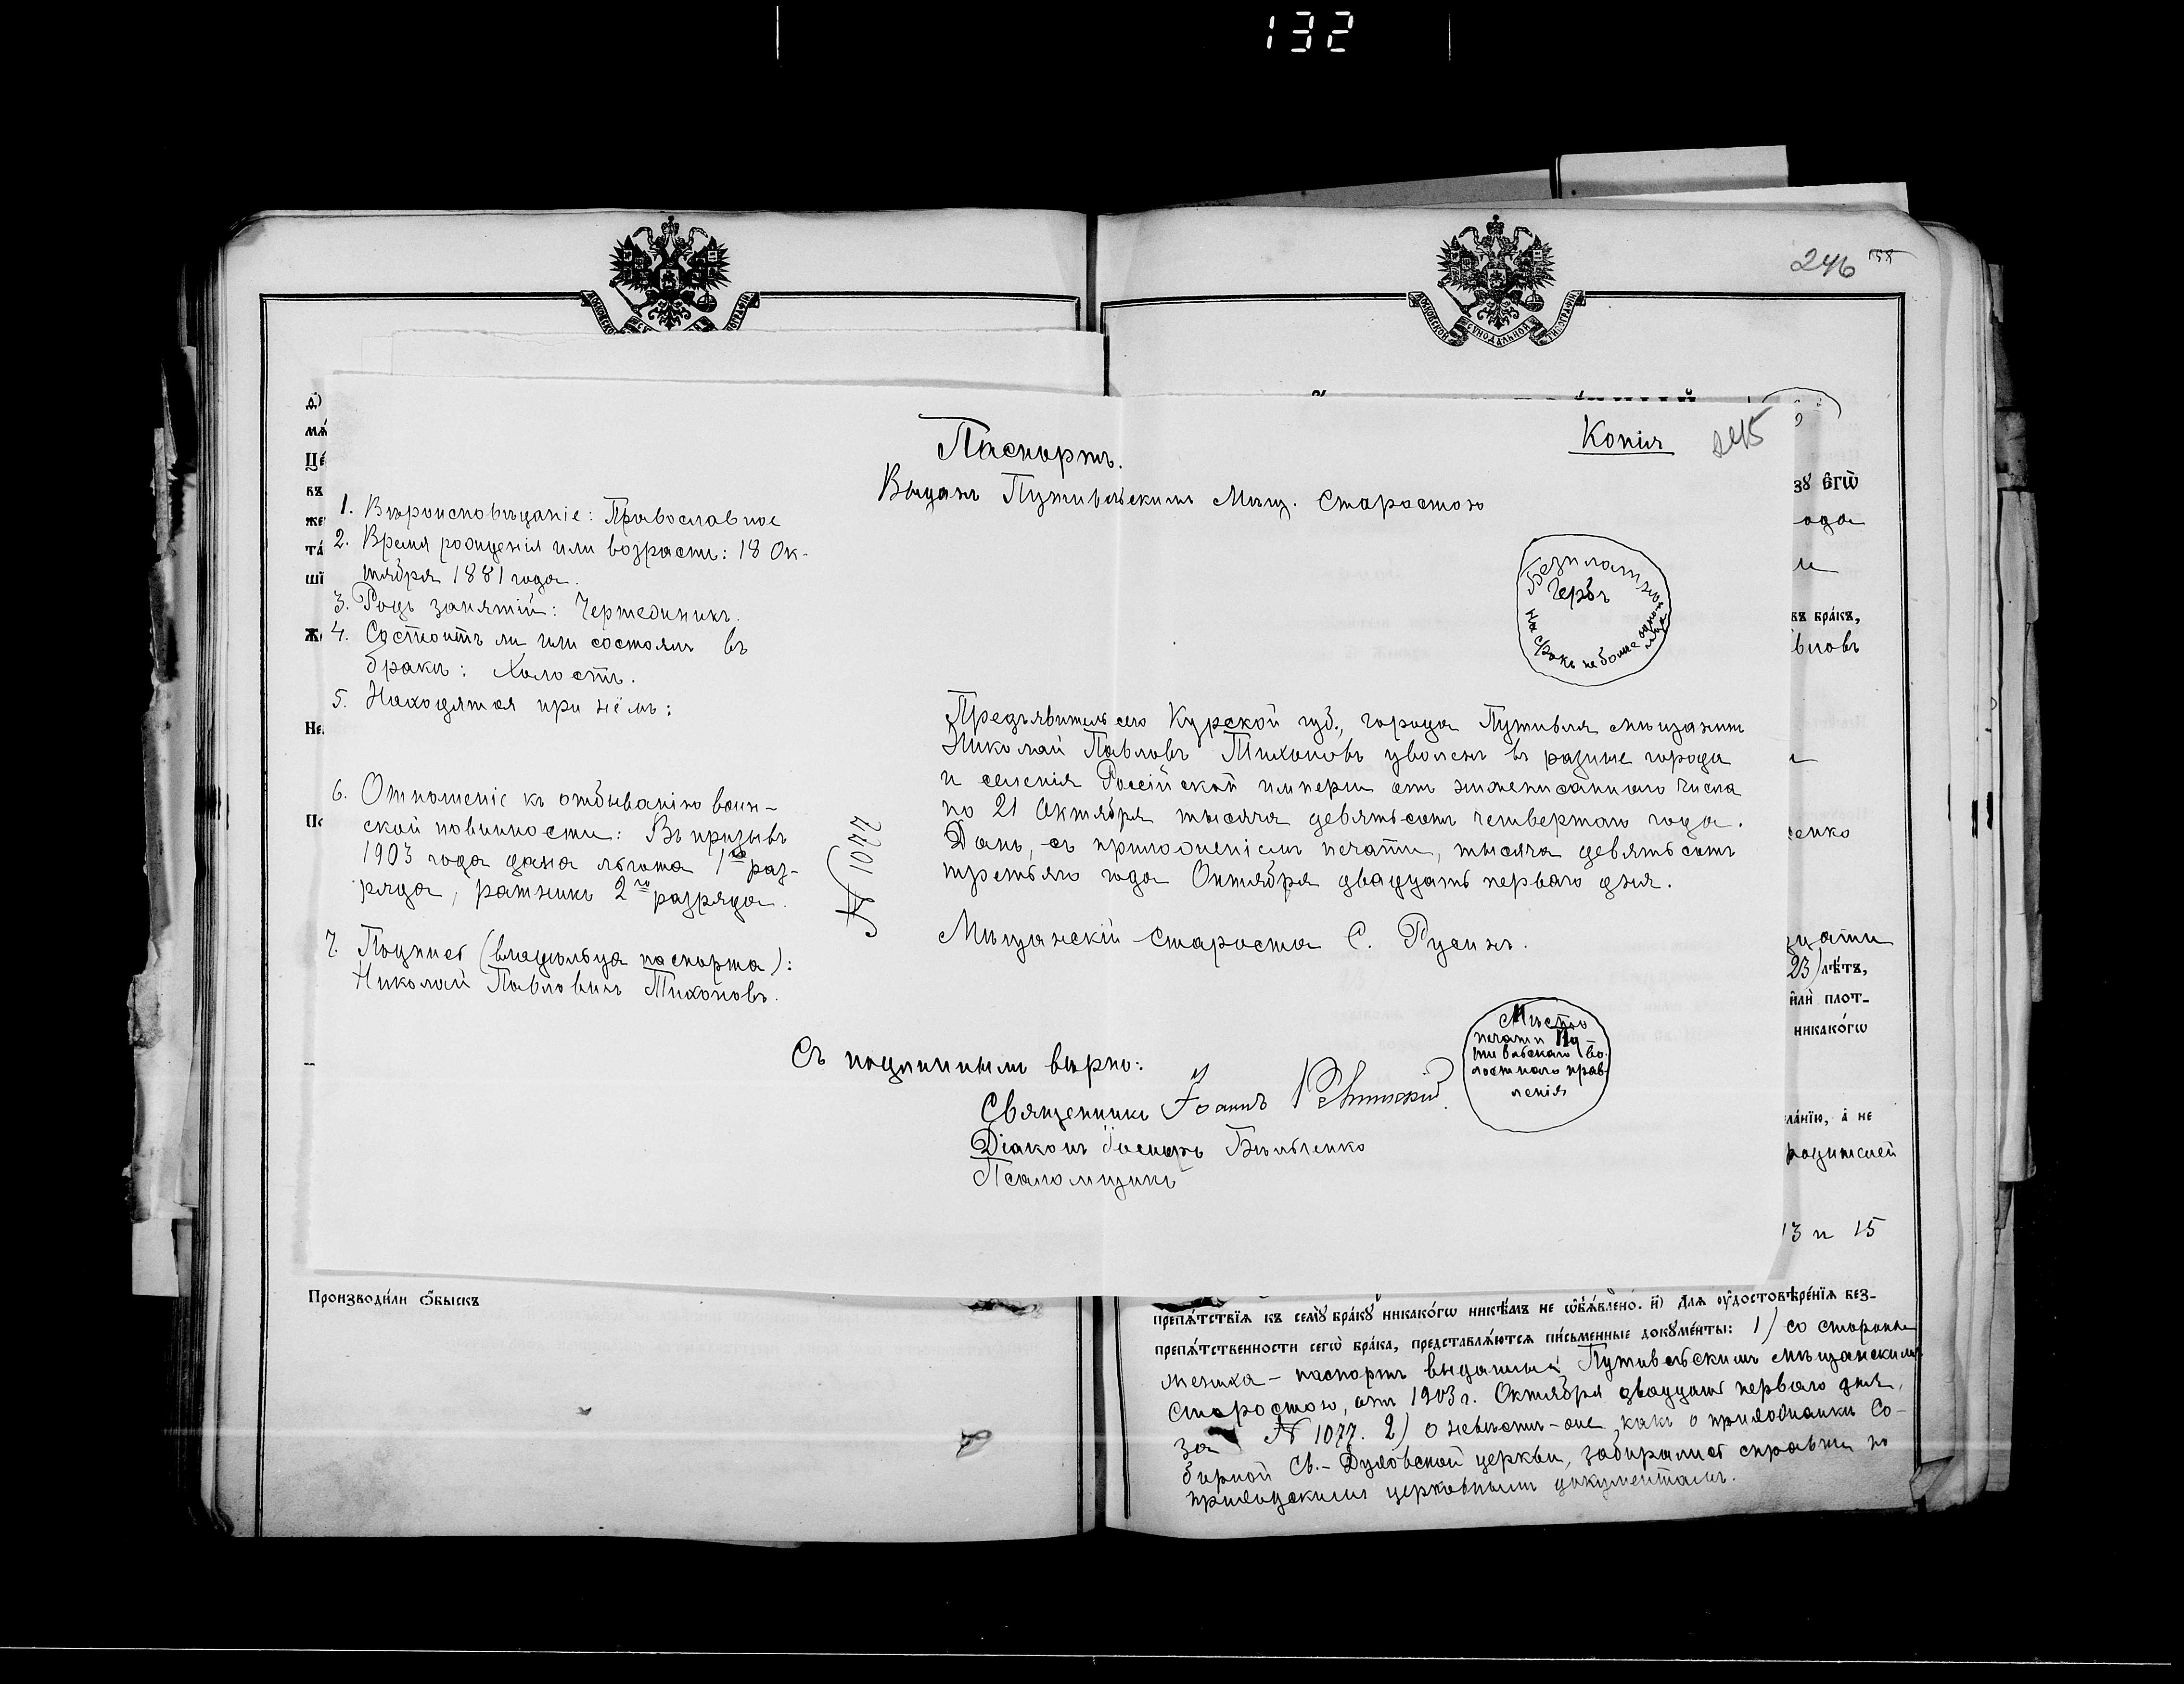 132
246
158
Московской Сѵнодальной Типографіи
Копія
245
Паспортъ.
Выданъ Путивльскимъ Мѣщ. Старостою
1. Вѣроисповѣданіе: Православное
2. Время рожденія или возрастъ: 18 Ок-
тября 1881 года.
3. Родъ занятій: Чертежникъ.
4. Состоитъ ли или состоялъ въ
бракѣ: Холостъ.
5. Находятся при нёмъ:
6. Отношеніе къ отбыванію воин-
ской повинности: Въ призывъ
1903 года дана льгота 1го раз-
ряда, ратникъ 2го разряда.
7. Подпись (владѣльца паспорта):
Николай Павловичъ Тихоновъ.
Безплатный
Гербъ
На срокъ не более одного
года
№ 1077
Предъявитель сего Курской губ., города Путивля мѣщанинъ
Николай Павловъ Тихоновъ уволенъ въ разные города
и селенія Россійской имперіи отъ нижеписаннаго числа
по 21 Октября тысяча девятьсотъ четвертаго года.
Данъ, съ приложеніемъ печати, тысяча девятьсотъ
третьяго года Октября двадцать перваго дня.
Мѣщанскій Староста С. Русинъ.
Мѣсто
печати Пу-
тивльскаго во-
лостнаго прав-
ленія
Съ подлиннымъ вѣрно:
Священникъ Іоаннъ
Діаконъ Іосифъ
Псаломщикъ
зꙋ єгѡ̀
ода
въ бра́къ,
вловъ
енко
цати
23) лѣ́тъ,
и҆лѝ плот-
никако́гѡ
ла́нїю, а҆ не
родителей
13 и 15
Производи́ли ѻ҆́быскъ
препѧ́тствїѧ къ семꙋ̀ бра́кꙋ никако́гѡ никѣ́мъ не ѡ҆б̾ѧ́влено. и҃) Длѧ ᲂу҆достовѣре́нїѧ без-
препѧ́тственности сегѡ̀ бра́ка, представлѧ́ютсѧ пи́сьменные докꙋме́нты: 1) со стороны
жениха - паспортъ выданный Путивльскимъ мѣщанскимъ
Старостою, отъ 1903 г. Октября двадцать перваго дня,
за № 1077. 2) о невѣстѣ - оне, какъ о прихожанкѣ Со-
борной Св.-Духовской церкви, забирались справки по
приходскимъ церковнымъ документамъ.